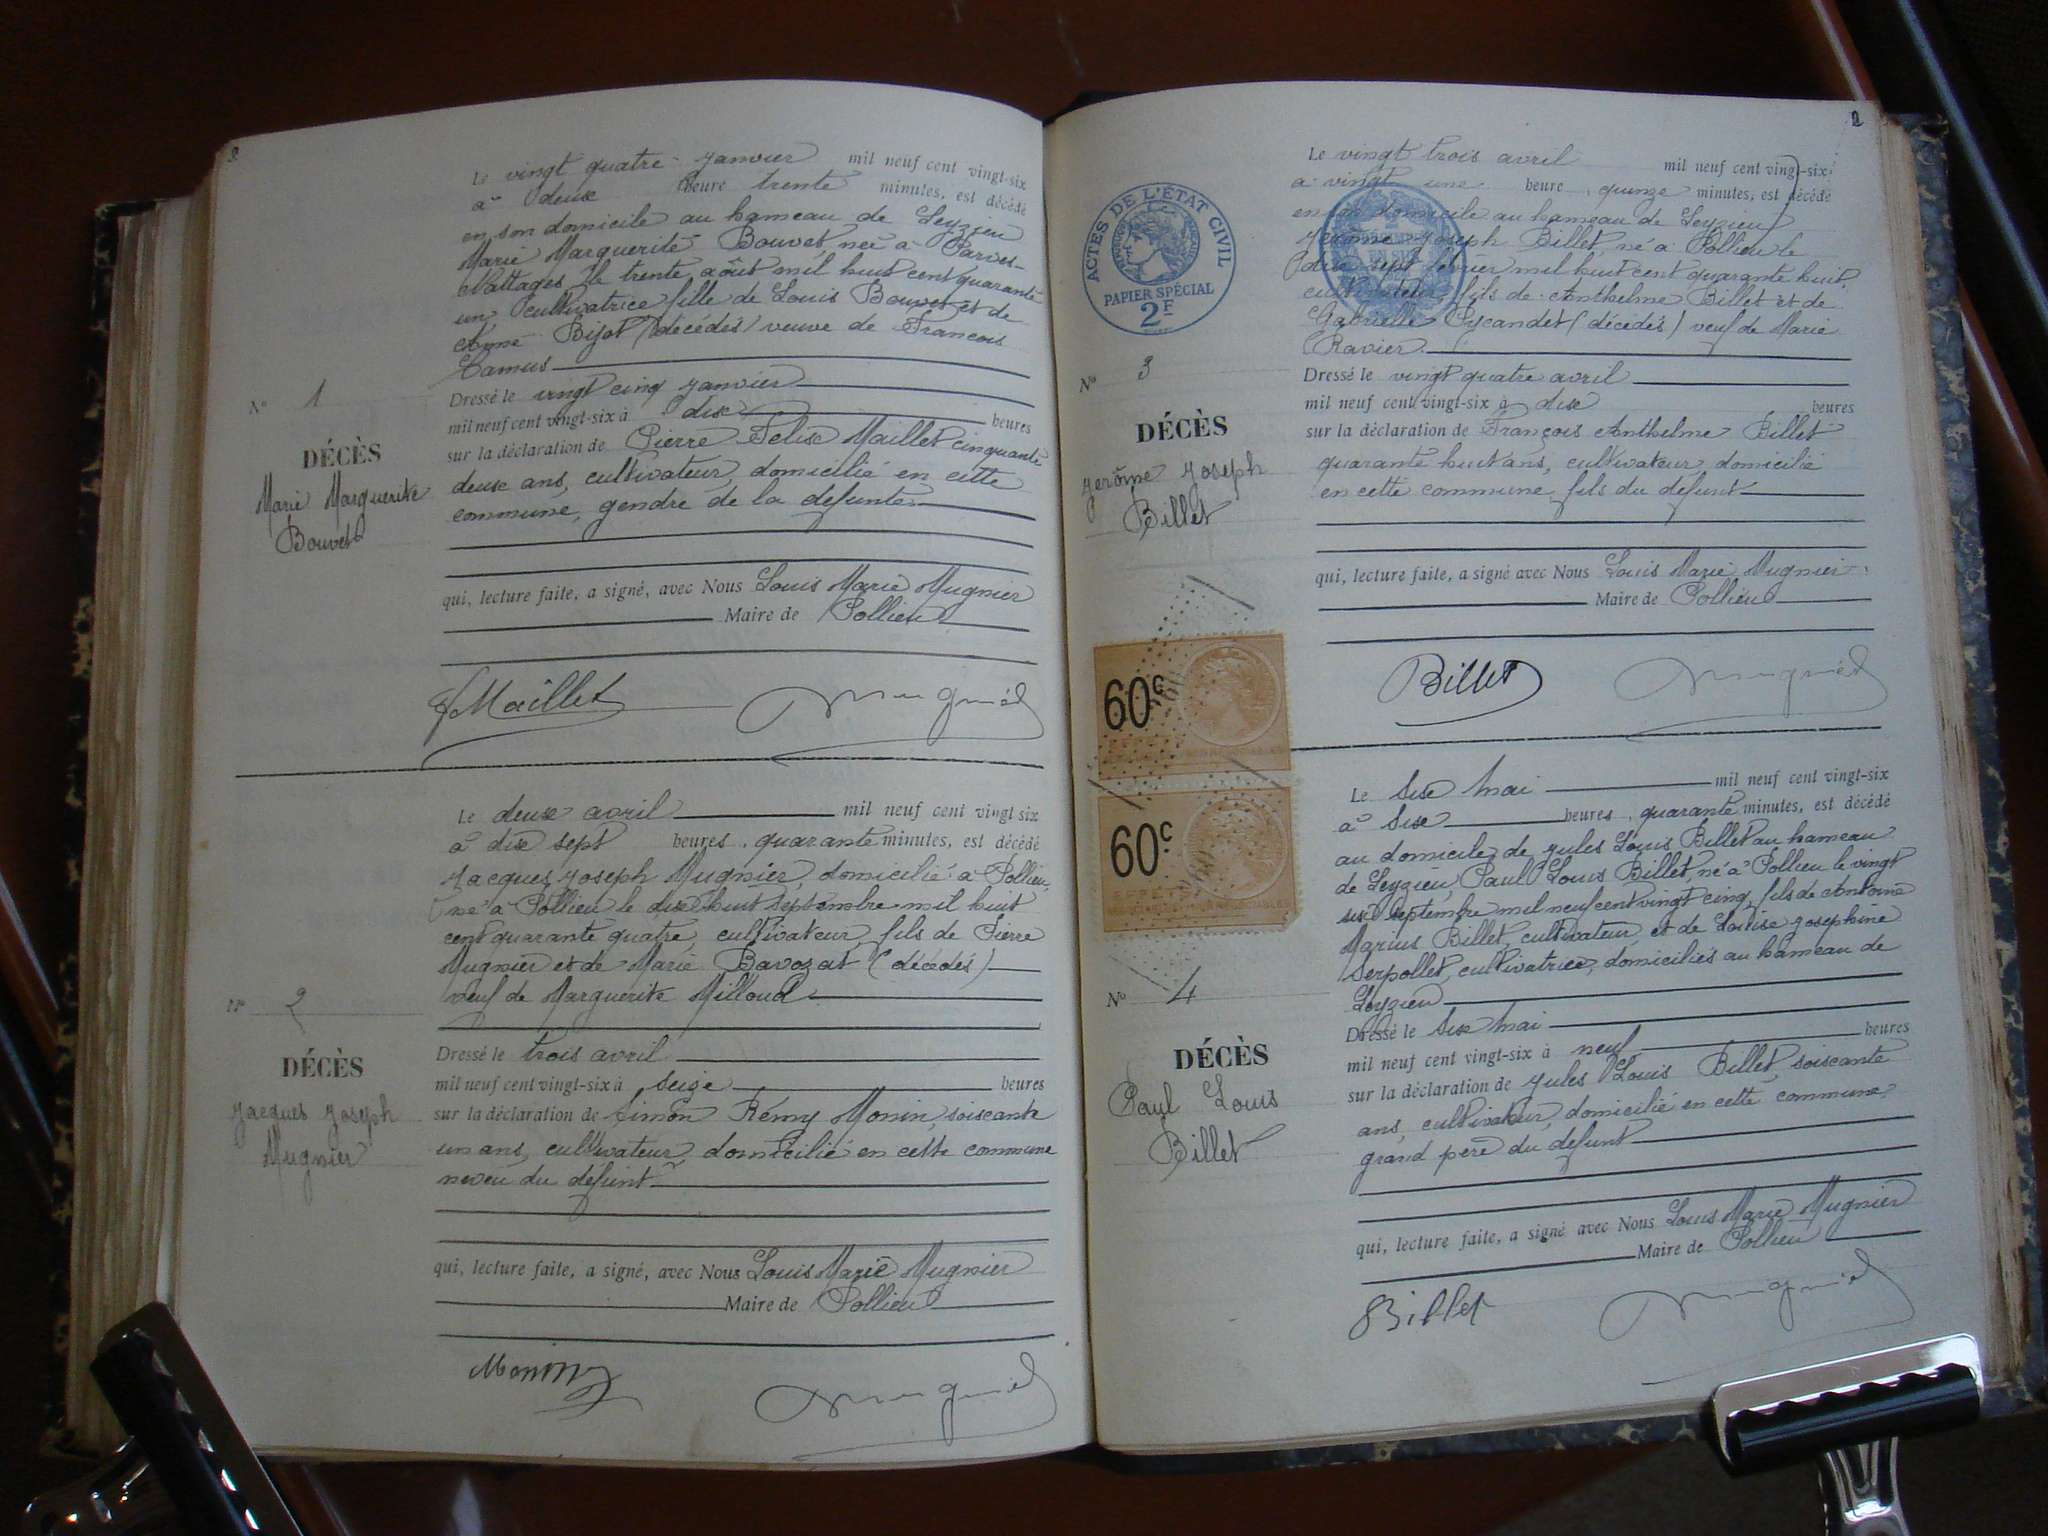 Le vingt quatre janvier mil neuf cent vingt-six
à deux heure trente minutes, est décédé
en son domicile au hameau de Leyzieu
Marie Marguerite Bouvet, née à Parves-
Nattages, le trente août mil huit cent quarante
un cultivatrice, fille de Louis Bouvet et de
Bijot (décédés) veuve de François
Camus
Dressé le vingt cinq janvier
mil neuf cent vingt-six à dix heures
sur la déclaration de Pierre Félix Maillet cinquante
deux ans, cultivateur, domicilié en cette
commune, gendre de la défunte
qui, lecture faite, a signé, avec Nous Louis Marie Mugnier
Maire de Pollieu
N° 1
DÉCÈS
Marie Marguerite
Bouvet
Maillet Mugnier
Le deux avril mil neuf cent vingt six
à dix sept heures, quarante minutes, est décédé
Jacques Joseph Mugnier, domicilié à Pollieu,
né à Pollieu le dix huit septembre mil huit
cent quarante quatre, cultivateur, fils de Pierre
Mugnier et de Marie Bavozat (décédés)
veuf de Marguerite Milloud
Dressé le trois avril
mil neuf cent vingt-six à seize heures
sur la déclaration de Simon Rémy Monin, soixante
un ans, cultivateur, domicilié en cette commune
neveu du défunt
qui, lecture faite, a signé, avec Nous Louis Marie Mugnier
Maire de Pollieu
N° 2
DÉCÈS
Jacques Joseph
Mugnier
Monin Mugnier
2
ACTES DE L'ÉTAT CIVIL
PAPIER SPÉCIAL
2F
Le vingt trois avril mil neuf cent vingt-six
à vingt une heure, quinze minutes, est décédé
en son domicile au hameau de Leyzieu
Jérôme Joseph Billet, né à Pollieu le
dix sept février mil huit cent quarante huit,
cultivateur, fils de Anthelme Billet et de
Gabrielle Sycandet (décédés) veuf de Marie
Ravier
Dressé le vingt quatre avril
mil neuf cent vingt-six à dix heures
sur la déclaration de François Anthelme Billet
quarante huit ans, cultivateur, domicilié
en cette commune, fils du défunt
qui, lecture faite, a signé avec Nous Louis Marie Mugnier
Maire de Pollieu
N° 3
DÉCÈS
Jérôme Joseph
Billet
Billet Mugnier
60c
60c
Le six mai mil neuf cent vingt-six
à six heures, quarante minutes, est décédé
au domicile de Jules Louis Billet au hameau
de Leyzieu, Paul Louis Billet, né à Pollieu le vingt
six septembre mil neuf cent vingt cinq, fils de Antoine
Marius Billet, cultivateur et de Louise Joséphine
Serpollet, cultivatrice, domiciliés au hameau de
Leyzieu
Dressé le six mai
mil neuf cent vingt-six à neuf heures
sur la déclaration de Jules Louis Billet, soixante
ans, cultivateur, domicilié en cette commune,
grand père du défunt
qui, lecture faite, a signé avec Nous Louis Marie Mugnier
Maire de Pollieu
N° 4
DÉCÈS
Paul Louis
Billet
Billet Mugnier